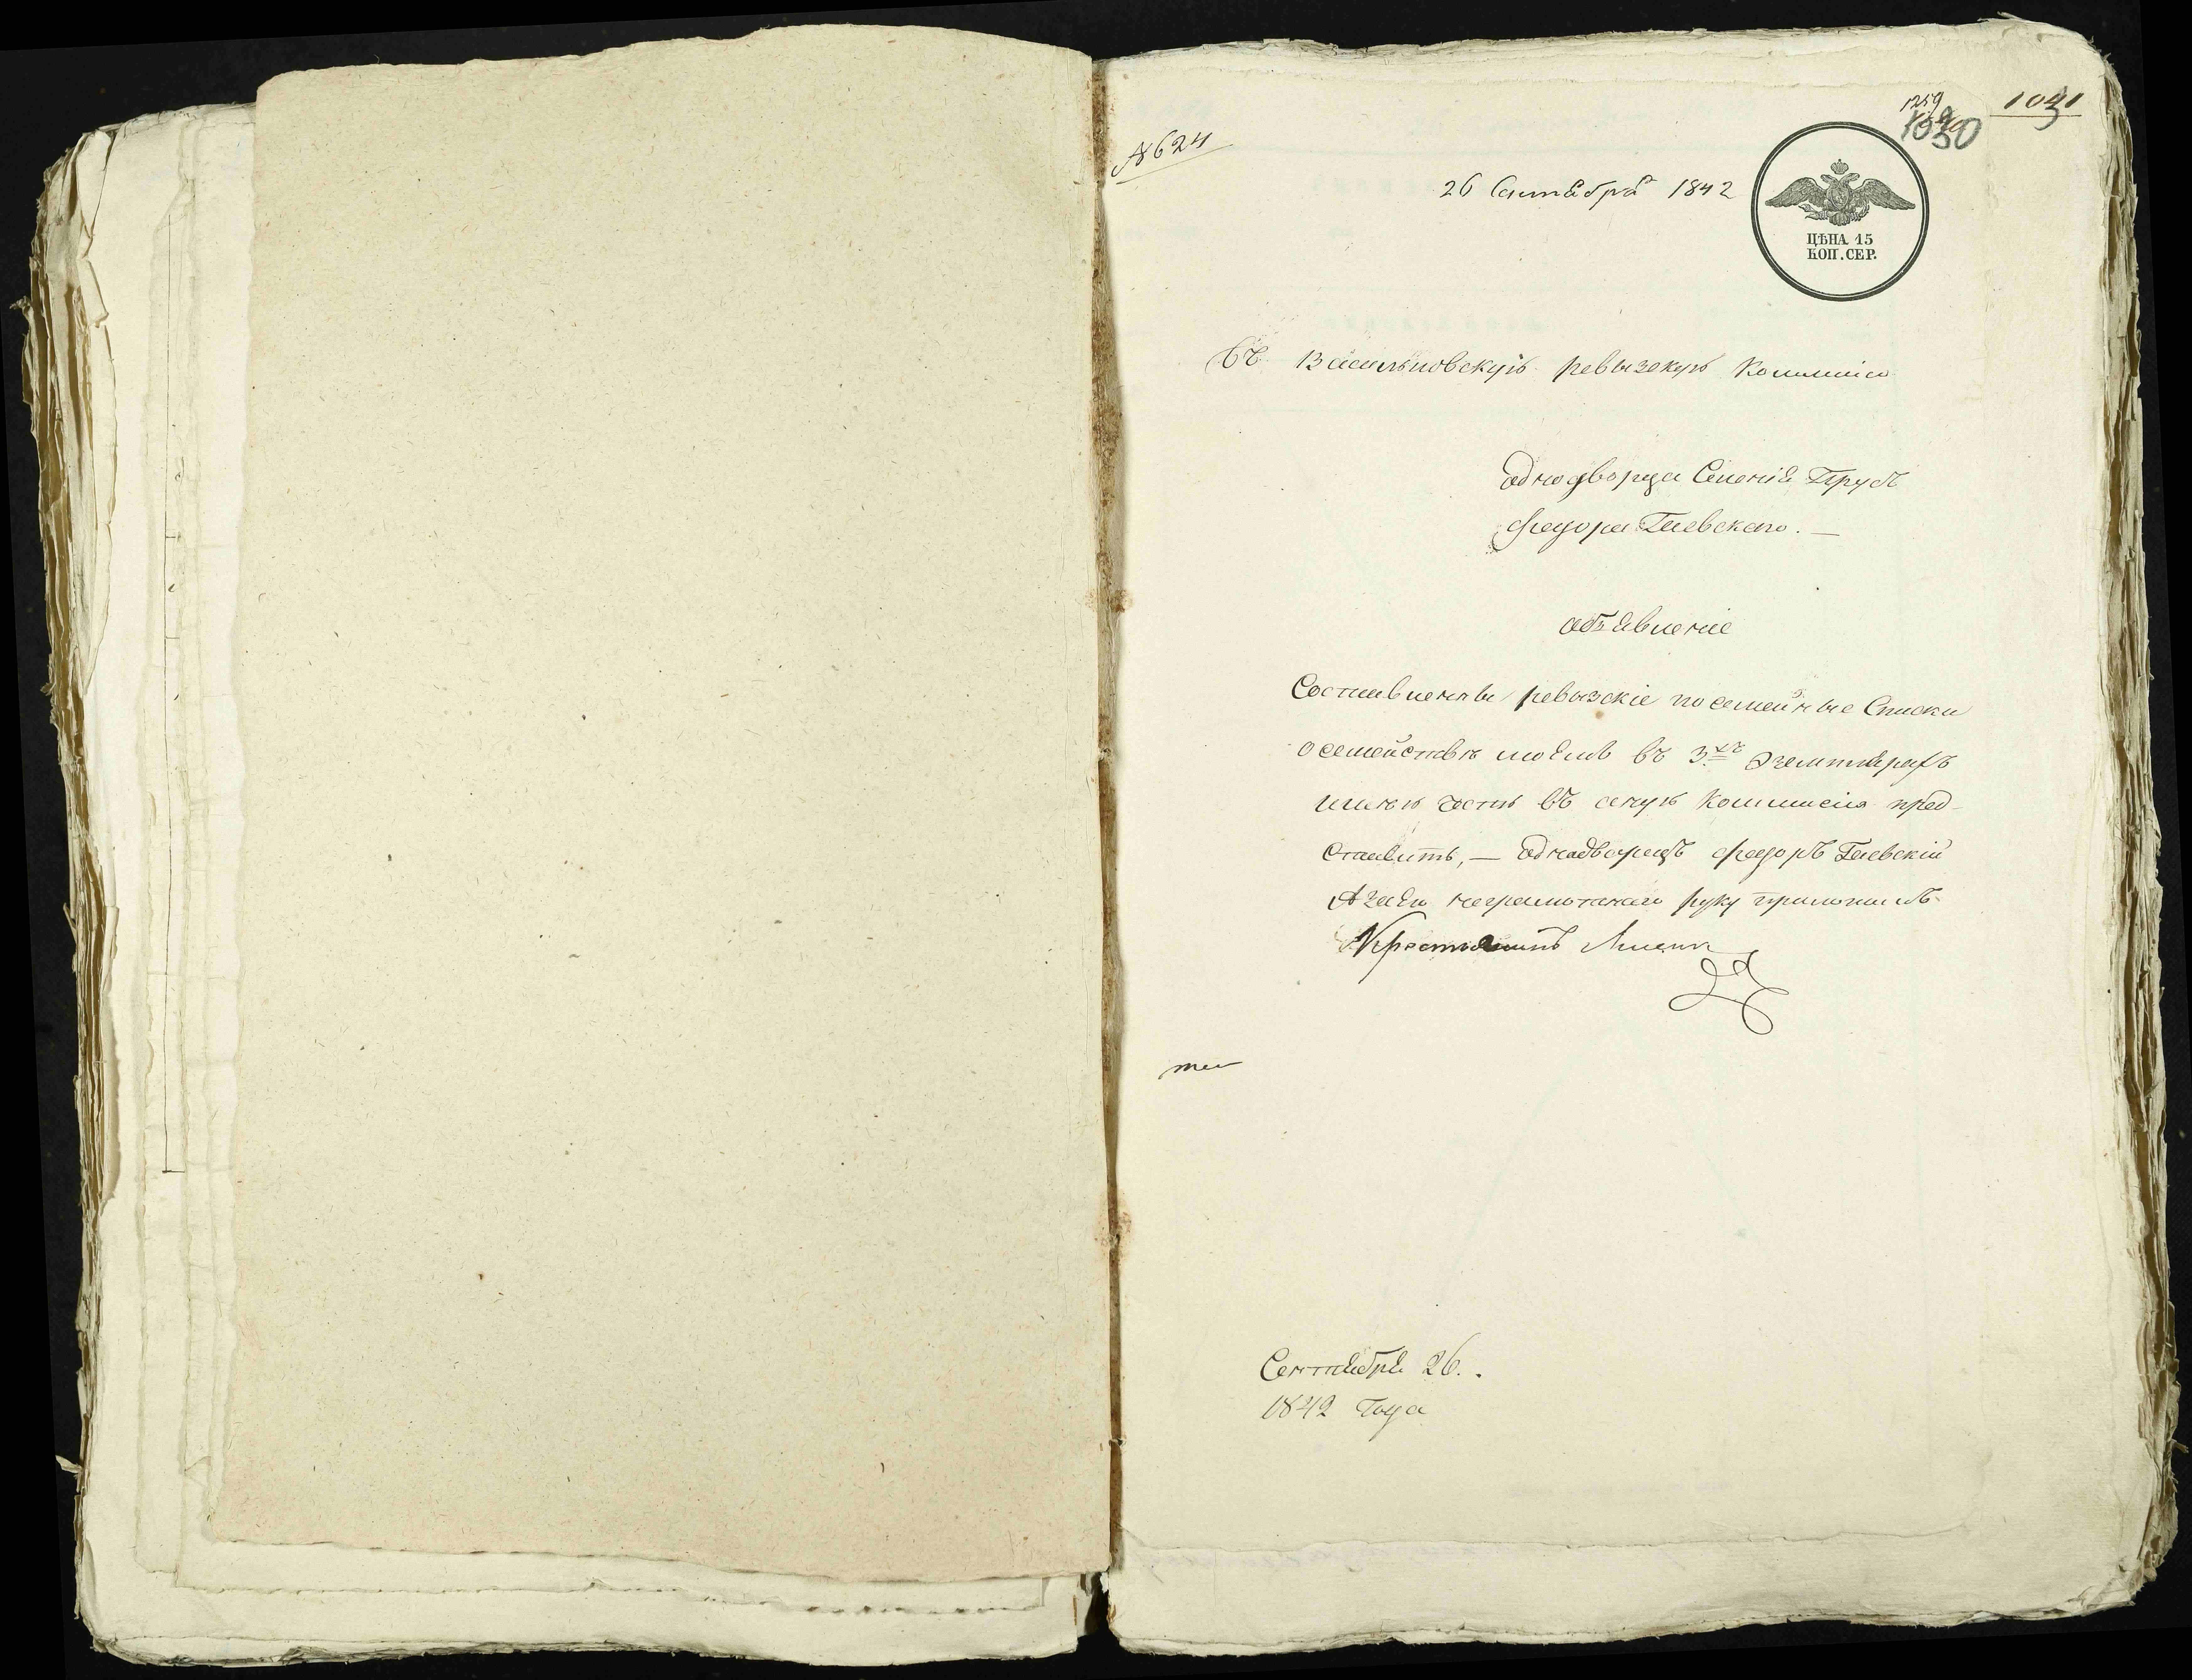 1259
1031
1030
№ 624
26 Сентября 1842
ЦѢНА 15
КОП. СЕР.
Въ Васильковскую ревызскую Коммисію
однодворца Селенія Прусъ
федора Гаевскаго. —
объявленіе
Составленны ревызскіе посемейные Списки
о семействѣ моемъ въ 3хъ Экземплярахъ
имѣю честь въ оную Коммисію пред-
ставить, — Однадворецъ федоръ Гаевскій
А за его неграмотнаго руку приложилъ
Крестьянинъ
Сентября 26.
1842 Года